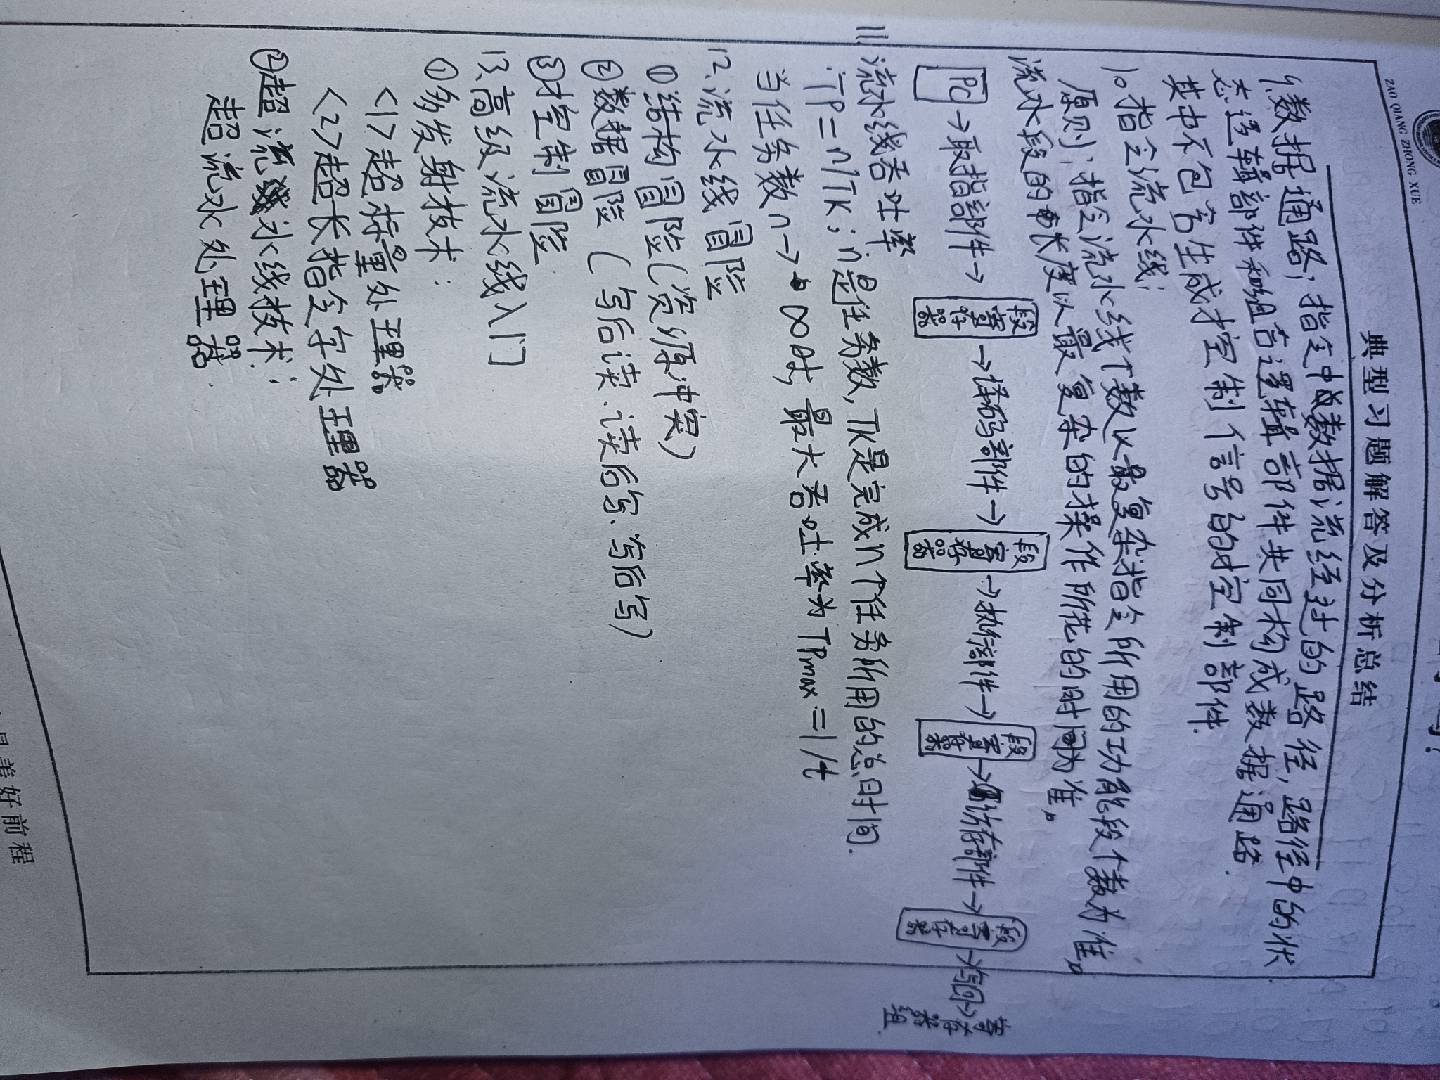 ZAO QIANG ZHONG XUE
典型习题解答及分析总结
9.数据通路;指令中或数据流经过的路径,路径中的状
态逻辑部件和组合逻辑部件共同构成数据通路.
其中不包含生成控制信号的控制部件.
10.指令流水线;
原则;指令流水线个数以最复杂指令所用的功能段个数为准。
流水段的长度以最复杂的操作所花的时间为准。
PC→取指部件→段寄存器→译码部件→段寄存器→执行部件→段寄存器→访存部件→段寄存器→写回→寄存器组
11.流水线吞吐率
:TP=n/TK;n是任务数,TK是完成n个任务所用的总时间.
当任务数n→∞时,最大吞吐率为TPmax=1/t
12.流水线冒险
①结构冒险(资源冲突)
②数据冒险(写后读、读后写、写后写)
③控制冒险
13.高级流水线入门
①多发射技术:
<1>超标量处理器
<2>超长指令字处理器
②超流水线技术:
超流水处理器
是美好前程